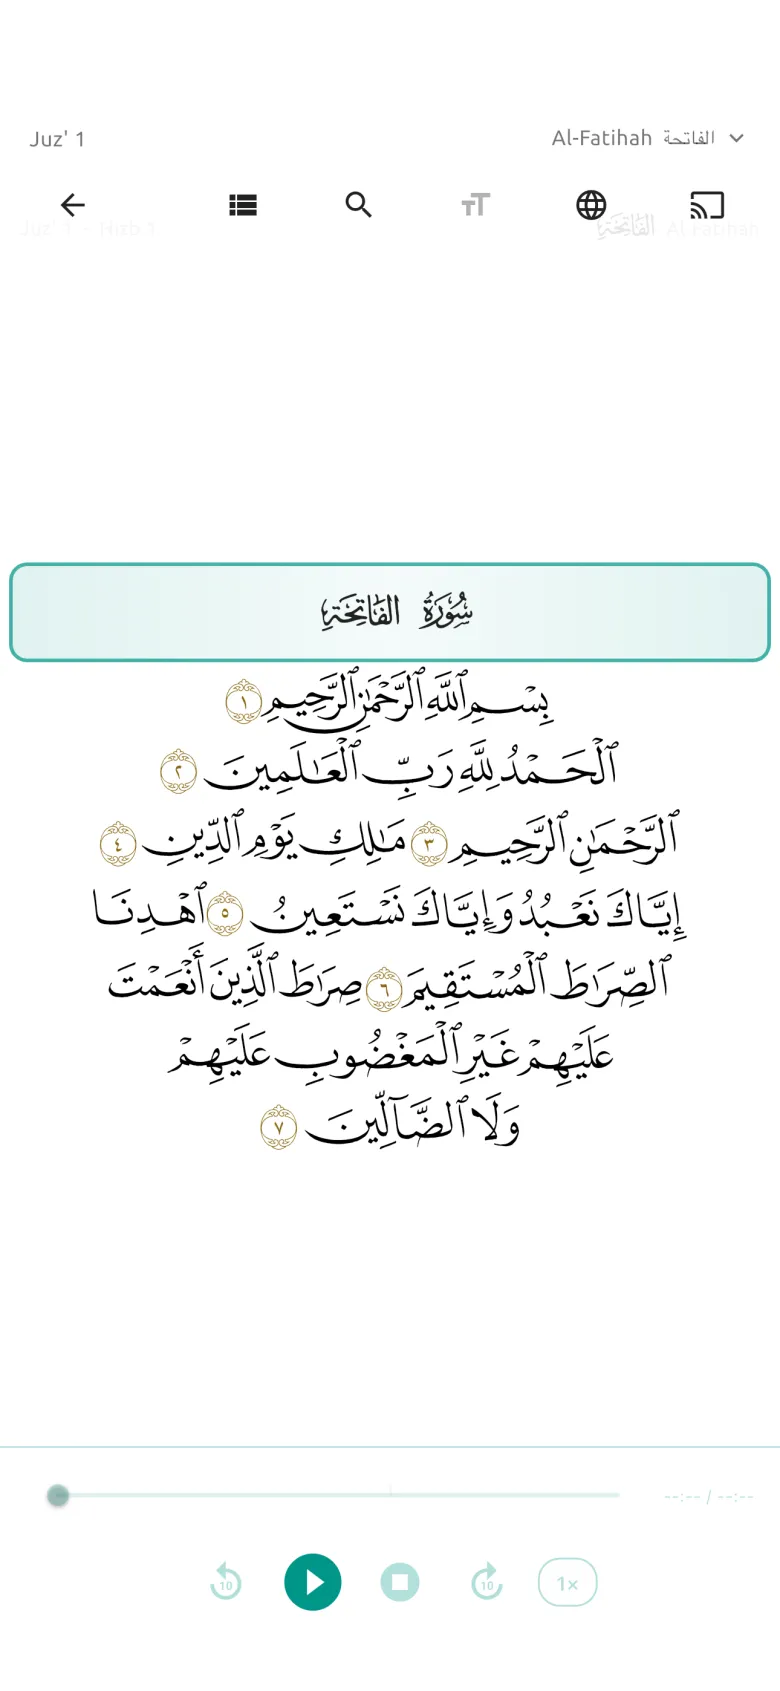 Juz' 1
Al-Fatihah الفاتحة
Juz' 1 - Hizb 1
الفَاتِحَةِ Al Fatihah
سُورَةُ الفَاتِحَةِ
بِسْمِ ٱللَّهِ ٱلرَّحْمَٰنِ ٱلرَّحِيمِ ١
ٱلْحَمْدُ لِلَّهِ رَبِّ ٱلْعَٰلَمِينَ ٢
ٱلرَّحْمَٰنِ ٱلرَّحِيمِ ٣ مَٰلِكِ يَوْمِ ٱلدِّينِ ٤
إِيَّاكَ نَعْبُدُ وَإِيَّاكَ نَسْتَعِينُ ٥ ٱهْدِنَا
ٱلصِّرَٰطَ ٱلْمُسْتَقِيمَ ٦ صِرَٰطَ ٱلَّذِينَ أَنْعَمْتَ
عَلَيْهِمْ غَيْرِ ٱلْمَغْضُوبِ عَلَيْهِمْ
وَلَا ٱلضَّآلِّينَ ٧
--:-- / --:--
10
10
1x